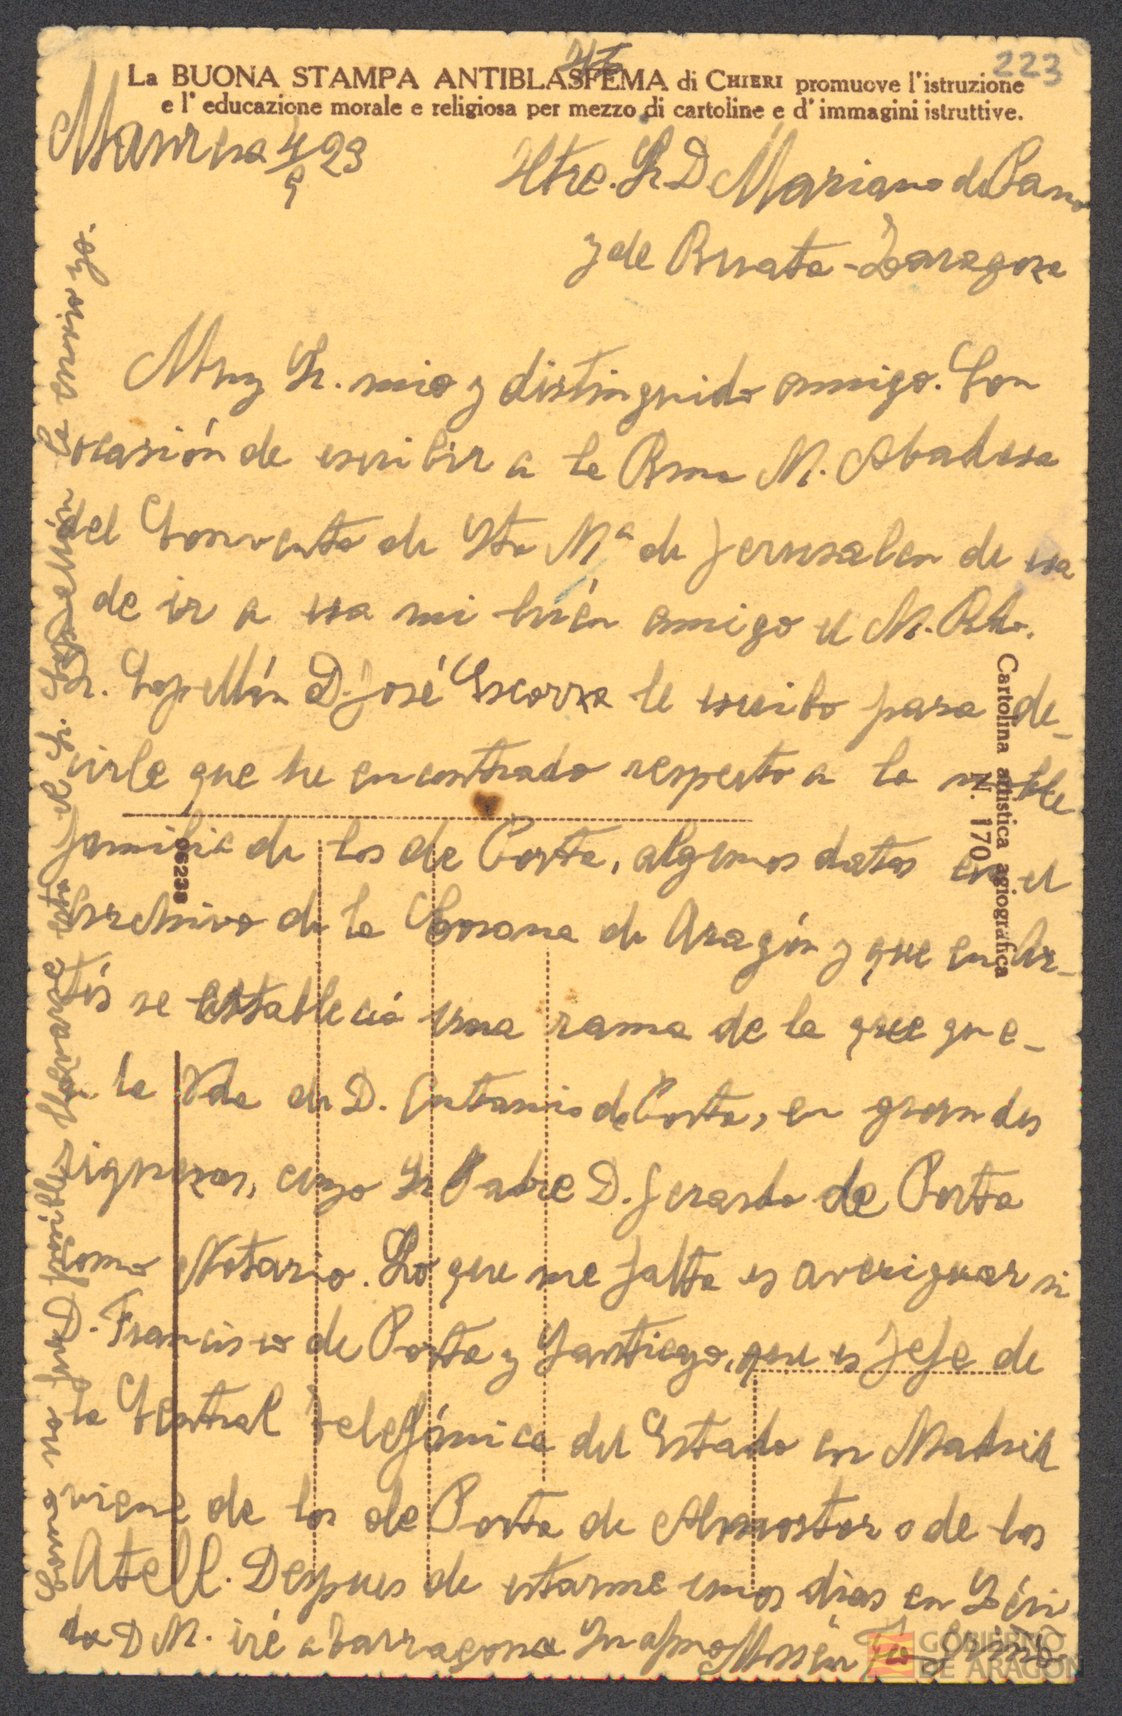 223
La BUONA STAMPA ANTIBLASFEMA di CHIERI promuove l'istruzione
e l' educazione morale e religiosa per mezzo di cartoline e d' immagini istruttive.
Manresa 4/9 23
Iltre. Sr. D. Mariano de Pano
y de Ruata - Zaragoza
Muy Sr. mio y distinguido amigo. Con
ocasión de escribir a la Rma M. Abadesa
del Convento de Sta Mª de Jerusalen de esa
de ir a esa mi buén amigo el M. Rdo.
Sr. Capellán D. José Escorza le escribo para de-
cirle que he encontrado respecto a la noble
familia de los de Porta, algunos datos en el
Archivo de la Corona de Aragón y que en Ar-
tés se estableció una rama de la que que-
la Vda de D. Antonio de Porta, en grandes
riquezas, cuyo Sr Padre D. Gerardo de Porta
como Notario. Lo que me falta es averiguar si
D. Francisco de Porta y Santiago, que es Jefe de
la Central Telefónica del Estado en Madrid
viene de los de Porta de Almostor o de los
Atell. Despues de estarme unos dias en Léri
da D M. iré a Tarragona Su afmo Mossén
Como no fue posible llevarse esta el Sr. Capellán la envio yo.
Cartolina artistica agiografica
N. 170
06233
GOBIERNO
DE ARAGON